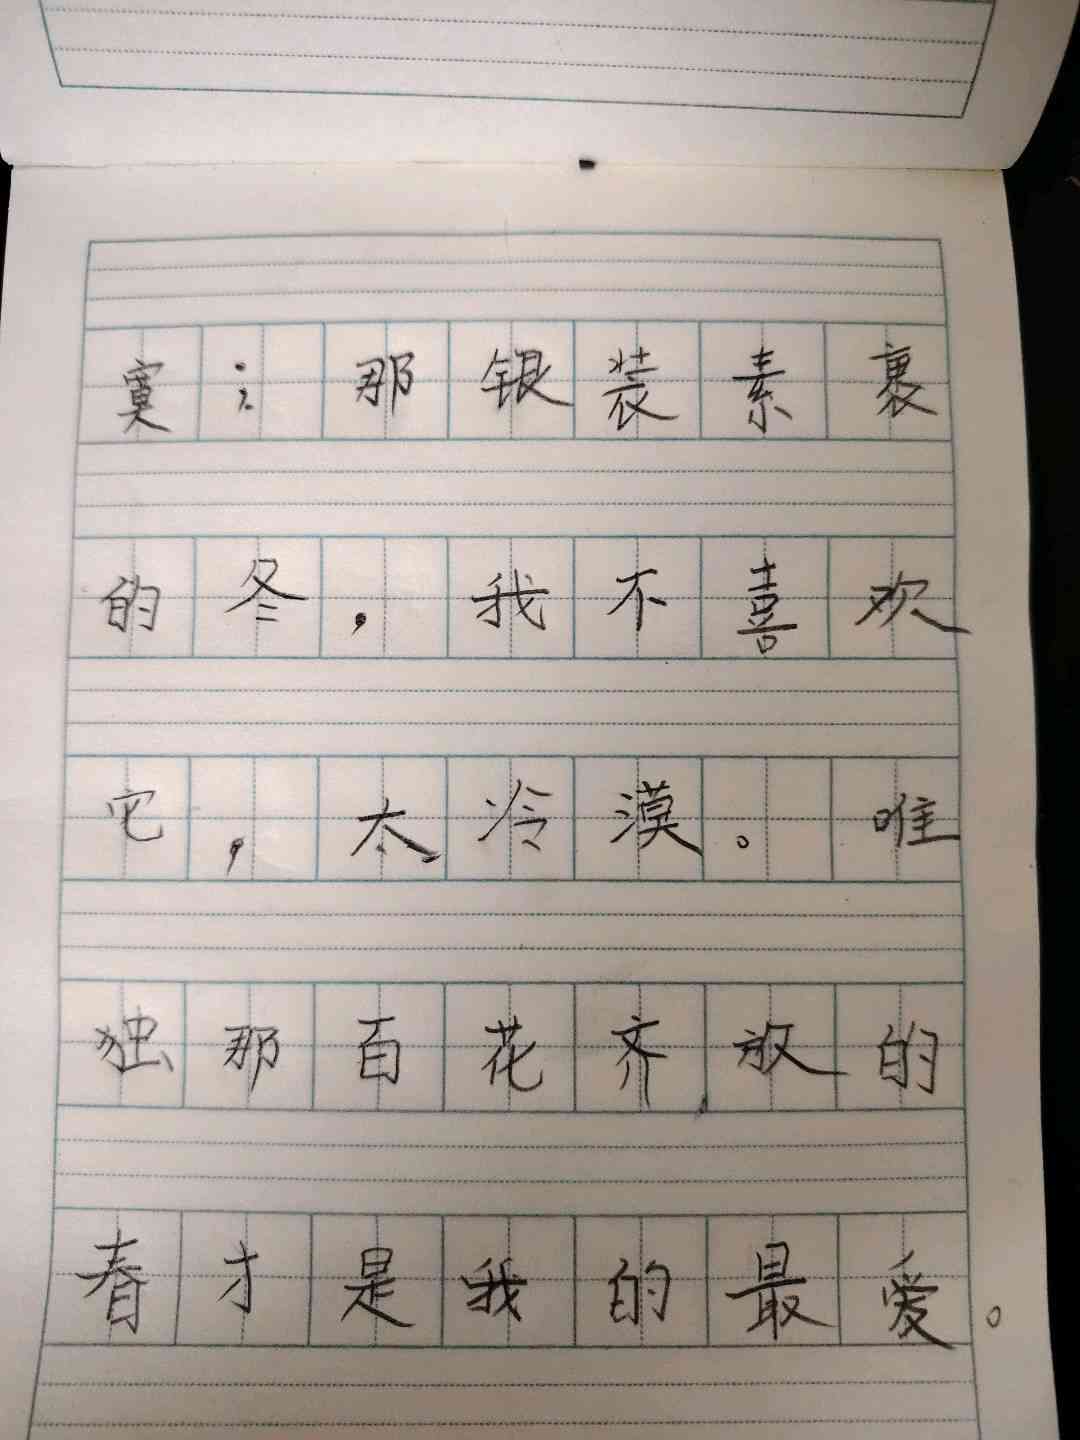 寞；那银装素裹
的冬，我不喜欢
它，太冷漠。唯
独那百花齐放的
春才是我的最爱。